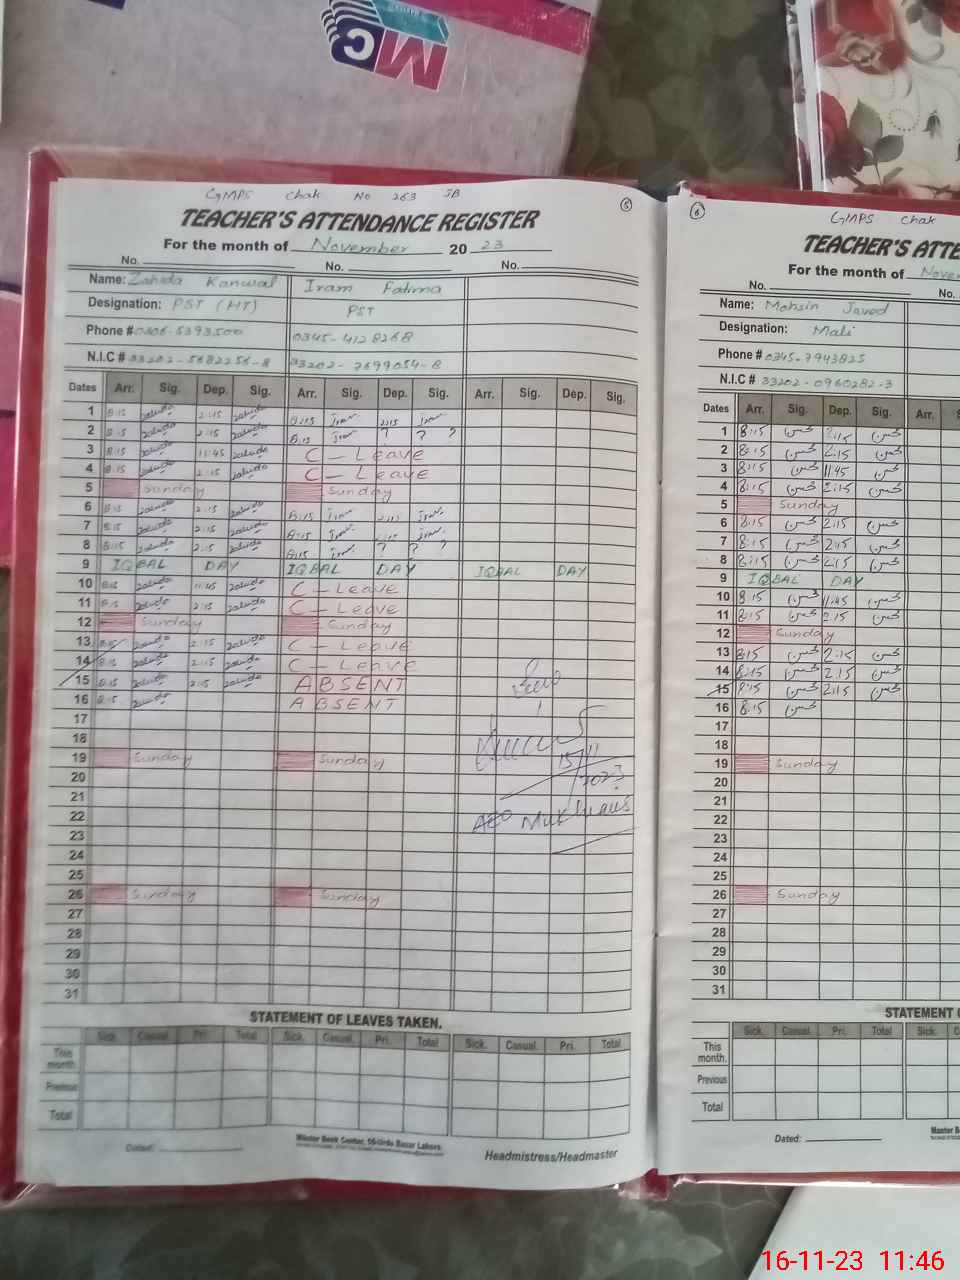 MC
GMPS Chak No 263 JB
5
TEACHER'S ATTENDANCE REGISTER
For the month of November 2023
No. No. No.
Name: Zahida Kanwal Iram Fatima
Designation: PST (HT) PST
Phone # 0306-5393500 0345-4128268
N.I.C # 33202-5682256-8 33202-7699054-8
Dates Arr. Sig. Dep. Sig. Arr. Sig. Dep. Sig. Arr. Sig. Dep. Sig.
1 8:15 2:15 8:15 2:15
2 8:15 2:15 8:15 ? ? ?
3 8:15 11:45 C - Leave
4 8:15 2:15 C - Leave
5 Sunday Sunday
6 8:15 2:15 8:15 2:15
7 8:15 2:15 8:15
8 8:15 2:15 8:15 ? ? ?
9 IQBAL DAY IQBAL DAY IQBAL DAY
10 8:15 11:45 C - Leave
11 8:15 2:15 C - Leave
12 Sunday Sunday
13 8:15 2:15 C - Leave
14 8:15 2:15 C - Leave
15 8:15 2:15 ABSENT
16 8:15 ABSENT
17
18
19 Sunday Sunday
20
21
22
23
24
25
26 Sunday Sunday
27
28
29
30
31
15/11
2023
AEO
STATEMENT OF LEAVES TAKEN.
Sick. Casual. Pri. Total Sick. Casual. Pri. Total Sick. Casual. Pri. Total
This month.
Previous
Total
Dated:
Master Book Center, 16-Urdu Bazar Lahore.
Headmistress/Headmaster
6
GMPS Chak
TEACHER'S ATTE
For the month of Novem
No. No.
Name: Mohsin Javed
Designation: Mali
Phone # 0345-7943825
N.I.C # 33202-0960282-3
Dates Arr. Sig. Dep. Sig. Arr. S
1 8:15 محسن 2:15 محسن
2 8:15 محسن 2:15 محسن
3 8:15 محسن 11:45 محسن
4 8:15 محسن 2:15 محسن
5 Sunday
6 8:15 محسن 2:15 محسن
7 8:15 محسن 2:15 محسن
8 8:15 محسن 2:15 محسن
9 IQBAL DAY
10 8:15 محسن 11:45 محسن
11 8:15 محسن 2:15 محسن
12 Sunday
13 8:15 محسن 2:15 محسن
14 8:15 محسن 2:15 محسن
15 8:15 محسن 2:15 محسن
16 8:15 محسن
17
18
19 Sunday
20
21
22
23
24
25
26 Sunday
27
28
29
30
31
STATEMENT O
Sick. Casual. Pri. Total Sick. C
This month.
Previous
Total
Dated:
Master B
16-11-23 11:46